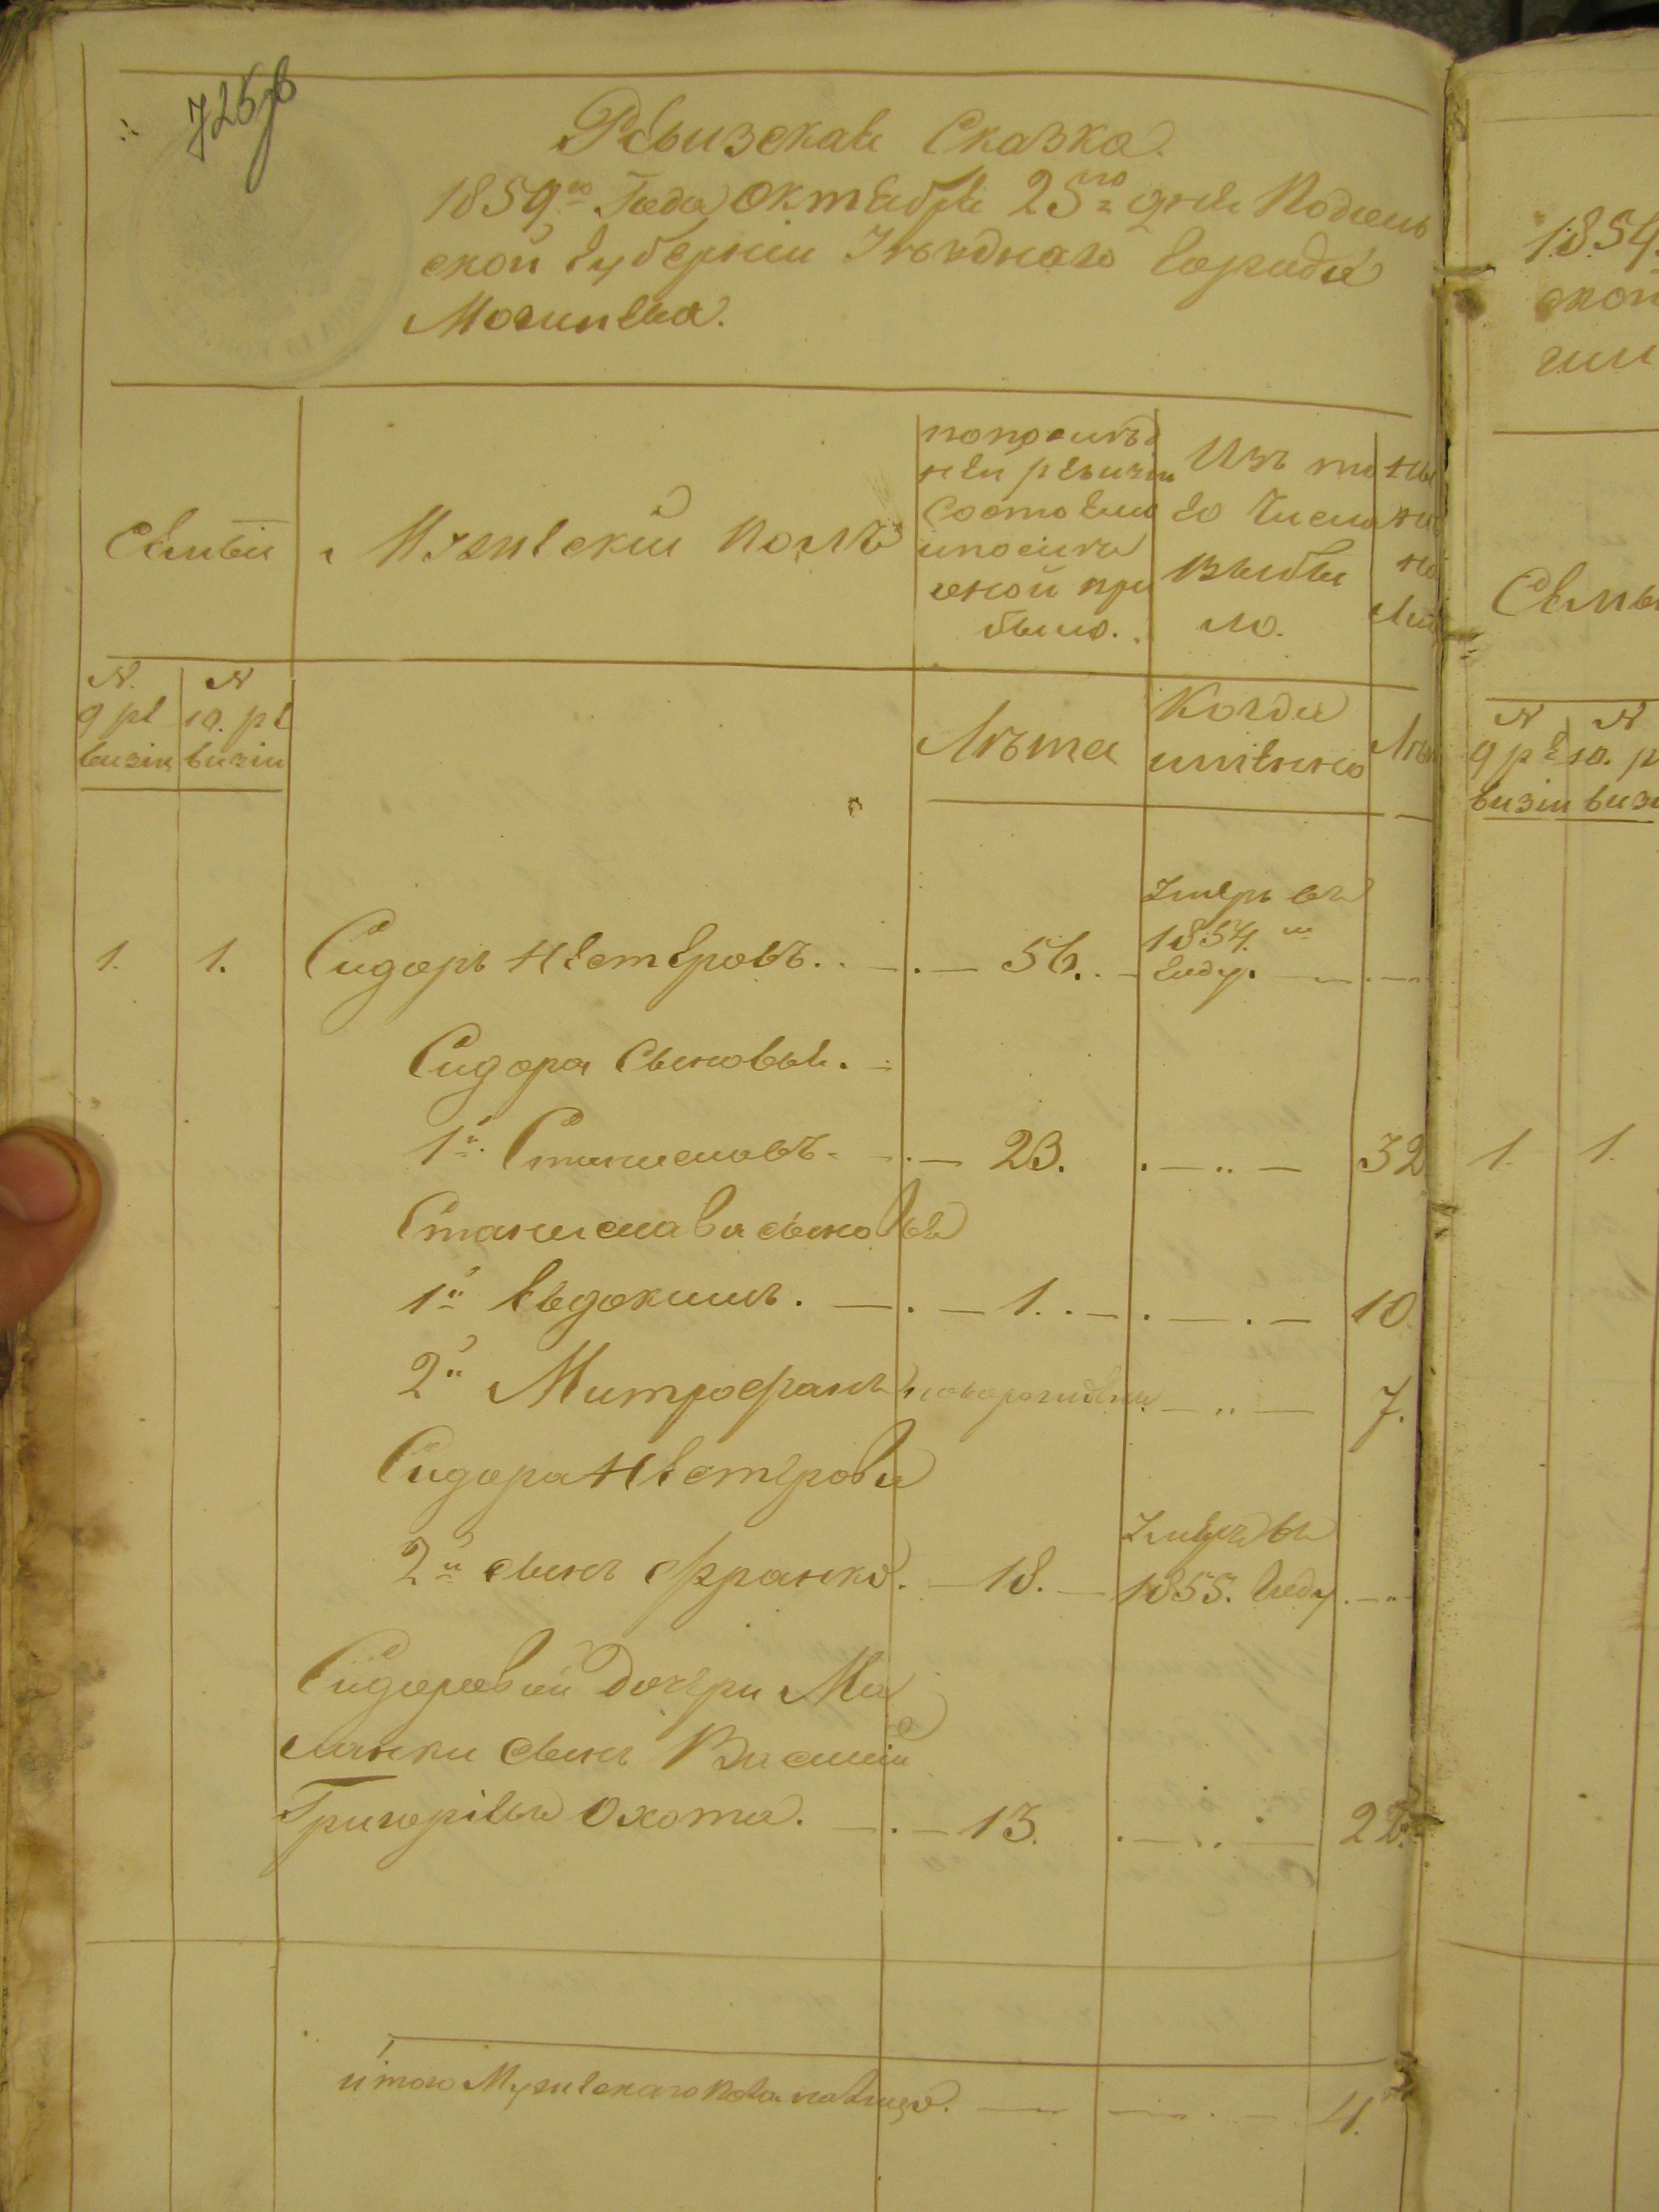 725об
Ревизская Сказка.
1859го Года Октября 25го дня Подоль
ской Губернии Уѣзднаго Города
Могилева.
Семьи
Мужеский Полъ
По послѣд
ней ревизи
состояло
и после
оной при
было.
Изъ то
го Числа
выбы
ло.
№
9 ре
визіи
№
10. ре
визіи
Лѣта
Когда
именно
Лѣт
1. 1. Сидоръ Нестеровъ. 56. Умеръ въ
1854м
Году.
Сидора Сыновья.
1й Станиславъ. 23. 32
Станислава сыновья
1й Евдокимъ. 1. 10.
2й Митрофанъ новорожденъ 7.
Сидора Нестерова
2й сынъ Франко. 18. Умеръ въ
1855. Году.
Сидоровой Дочери Ма
ланки сынъ Василій
Григоріевъ Охота. 13. 22.
итого Мужескаго пола налицо. 4.
1854
ской
Семьи
№
9 ре
визіи
№
10. р
визі
1. 1.